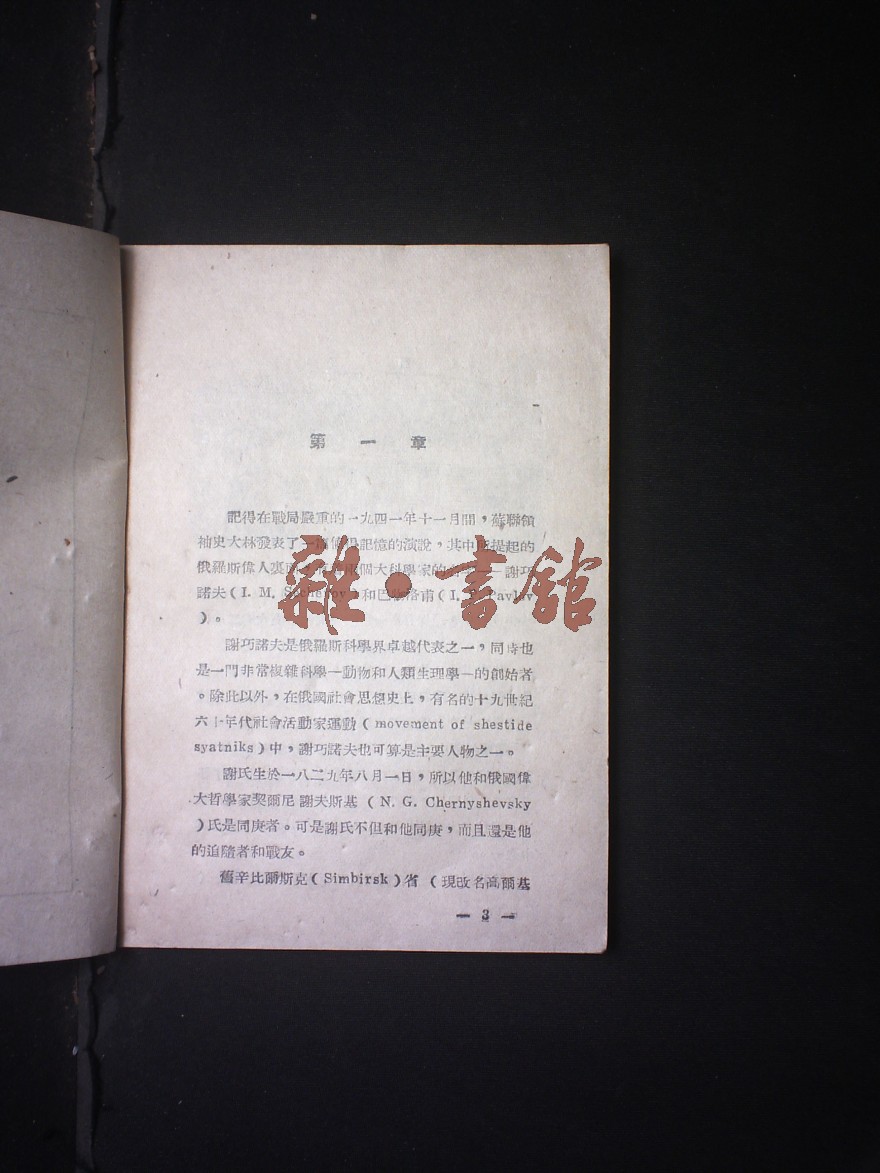 第一章
記得在戰局嚴重的一九四一年十一月間，蘇聯領
袖史大林發表了一 記憶的演說，其中 提起的
俄羅斯偉人裏面 個大科學家的 謝巧
諾夫（I. M. 和巴 洛甫（I. Pavlov
）。
謝巧諾夫是俄羅斯科學界卓越代表之一，同時也
是一門非常複雜科學—動物和人類生理學—的創始者
。除此以外，在俄國社會思想史上，有名的十九世紀
六十年代社會活動家運動（movement of shestide
syatniks）中，謝巧諾夫也可算是主要人物之一。
謝氏生於一八二九年八月一日，所以他和俄國偉
大哲學家契爾尼謝夫斯基（N. G. Chernyshevsky
）氏是同庚者。可是謝氏不但和他同庚，而且還是他
的追隨者和戰友。
舊辛比爾斯克（Simbirsk）省（現改名高爾基
— 3 —
雜·書館